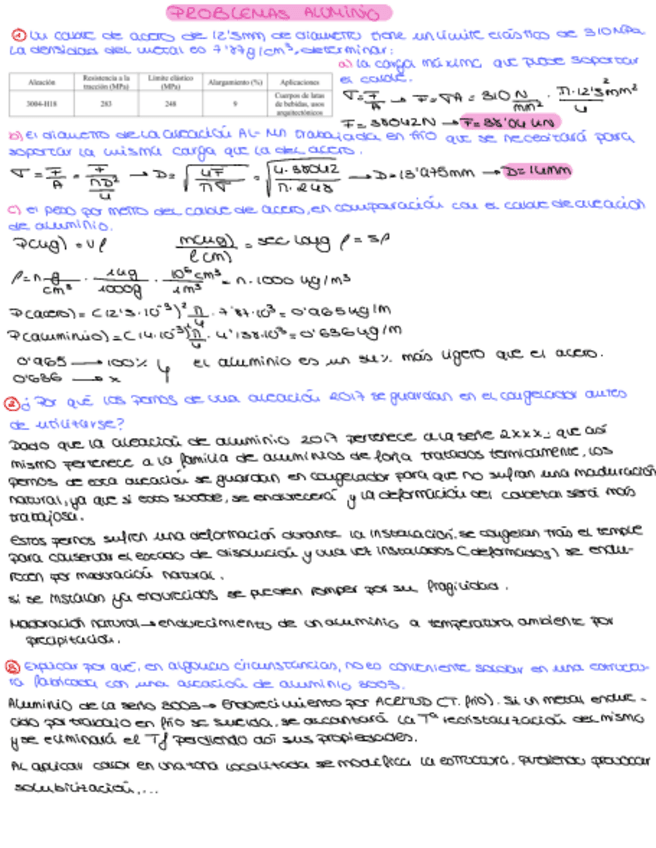 PROBLEMAS ALUMINIO
① Un cable de acero de 12'5mm de diámetro tiene un límite elástico de 310MPa.
La densidad del metal es 7'87g/cm³, determinar:
a) La carga máxima que puede soportar
el cable.
Aleación Resistencia a la tracción (MPa) Límite elástico (MPa) Alargamiento (%) Aplicaciones
3004-H18 283 248 9 Cuerpos de latas de bebidas, usos arquitectónicos
σ = F/A → F = σA = 310 N/mm² · π·12'5² mm²/4
F = 38042N → F = 38'04 kN
b) El diámetro de la aleación Al-Mn trabajada en frío que se necesitará para
soportar la misma carga que la del acero.
σ = F/A = F/(πD²/4) → D = √(4F/πσ) = √(4·38042/π·248) → D = 13'975mm → D = 14mm
c) El peso por metro del cable de acero, en comparación con el cable de aleación
de aluminio.
P(kg) = Vρ m(kg)/l(m) = sec long ρ = Sρ
ρ = n g/cm³ · 1kg/1000g · 10⁶cm³/1m³ = n·1000 kg/m³
P(acero) = (12'5·10⁻³)² π/4 · 7'87·10³ = 0'965kg/m
P(aluminio) = (14·10⁻³)² π/4 · 4'138·10³ = 0'636kg/m
0'965 → 100%
0'636 → x
el aluminio es un 34% más ligero que el acero.
② ¿Por qué los pernos de una aleación 2017 se guardan en el congelador antes
de utilizarse?
Dado que la aleación de aluminio 2017 pertenece a la serie 2xxx, que así
mismo pertenece a la familia de aluminios de forja tratados termicamente, los
pernos de esta aleación se guardan en congelador para que no sufran una maduración
natural, ya que si esto sucede, se endurecerá y la deformación del cabezal será más
trabajosa.
Estos pernos sufren una deformación durante la instalación, se congelan tras el temple
para conservar el estado de disolución y una vez instalados (deformados) se endu-
recen por maduración natural.
Si se instalan ya endurecidos se pueden romper por su fragilidad.
Maduración natural → endurecimiento de un aluminio a temperatura ambiente por
precipitación.
③ Explicar por qué, en algunas circunstancias, no es conveniente soldar en una estructu-
ra fabricada con una aleación de aluminio 3003.
Aluminio de la serie 3003 → Endurecimiento por ACRITUD (T. frío). Si un metal endure-
cido por trabajo en frío se suelda, se alcanzará la Tª recristalización del mismo
y se eliminará el Tf perdiendo así sus propiedades.
Al aplicar calor en una zona localizada se modifica la estructura, pudiendo provocar
solubilización,...